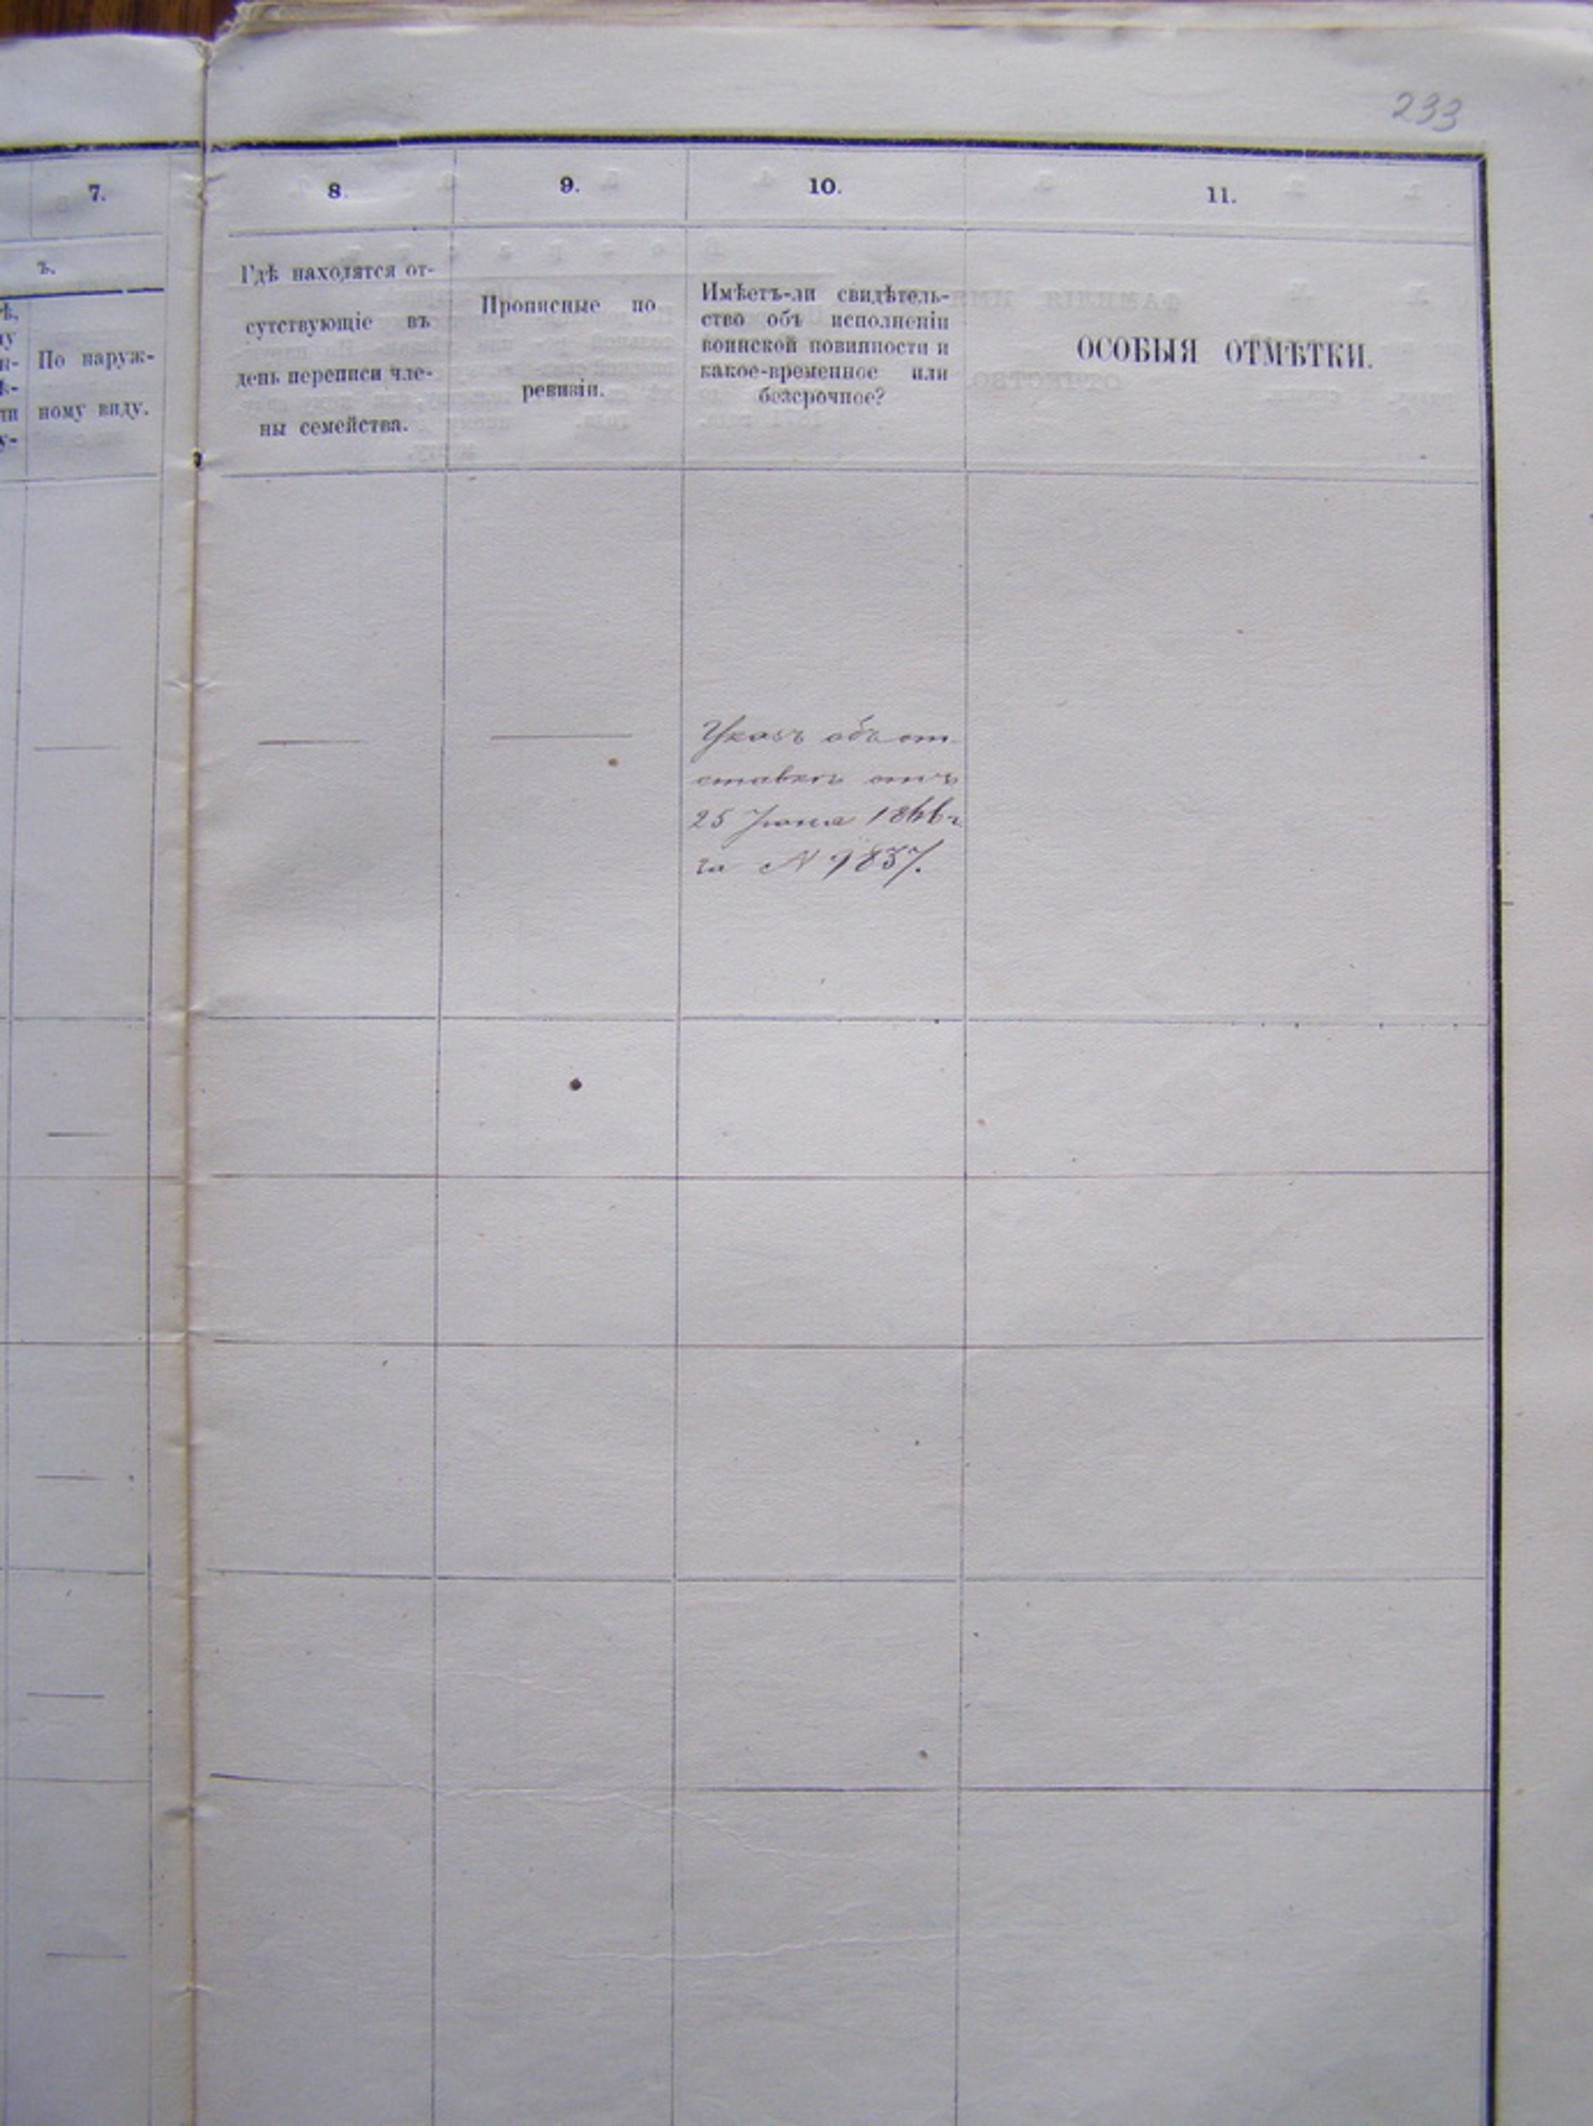 233
7.
8.
9.
10.
11.
ъ.
По наруж-
ному виду.
Гдѣ находятся от-
сутствующіе въ
день переписи чле-
ны семейства.
Прописные по
ревизіи.
Имѣетъ-ли свидѣтель-
ство объ исполненіи
воинской повинности и
какое-временное или
безсрочное?
ОСОБЫЯ ОТМѢТКИ.
Указъ объ от-
ставкѣ отъ
25 Іюня 1866 г
за № 9837.